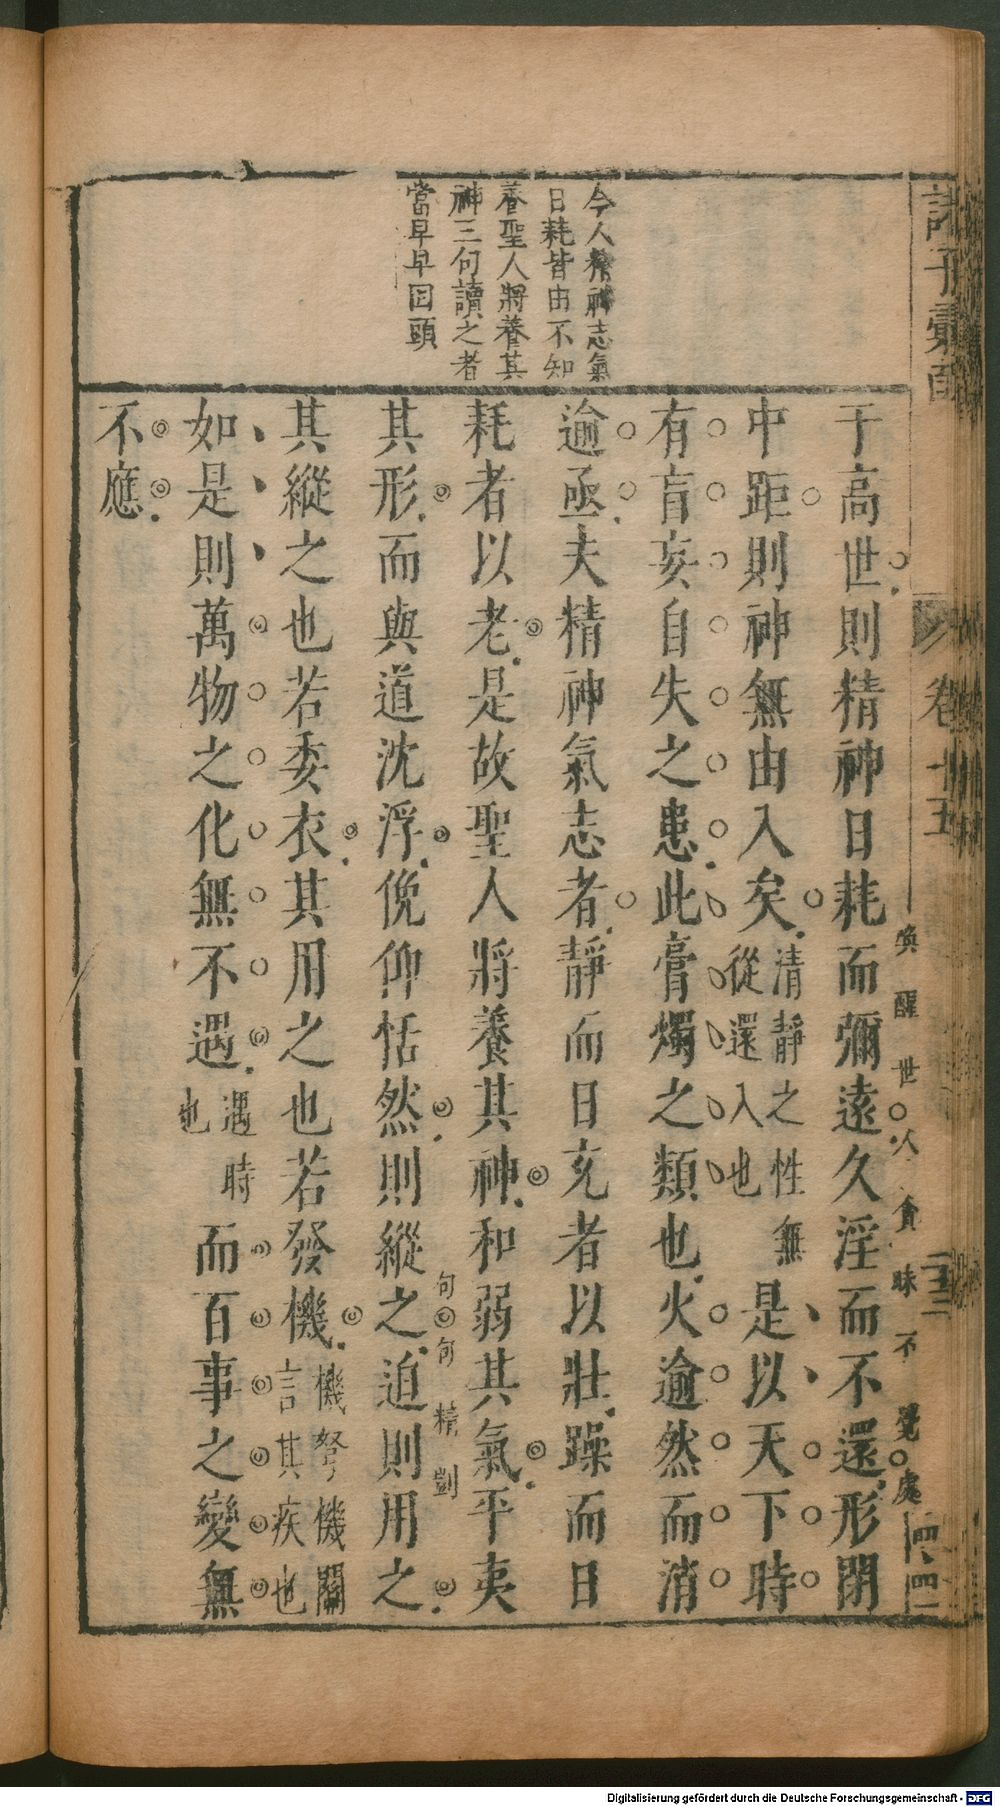 今人精神志氣
日耗皆由不知
養聖人將養其
神三句讀之者
當早早回頭
于高世則精神日耗而彌遠久淫而不還形閉
喚醒世人貪昧不覺處
中距則神無由入矣清靜之性無從還入也是以天下時
有盲妄自失之患此膏燭之類也火逾然而消
逾亟夫精神氣志者靜而日充者以壯躁而日
耗者以老是故聖人將養其神和弱其氣平夷
其形而與道沈浮俛仰恬然則縱之迫則用之
句句精劉
其縱之也若委衣其用之也若發機機弩機關言其疾也
如是則萬物之化無不遇遇時也而百事之變無
不應
卷十五
四四
Digitalisierung gefördert durch die Deutsche Forschungsgemeinschaft - DFG